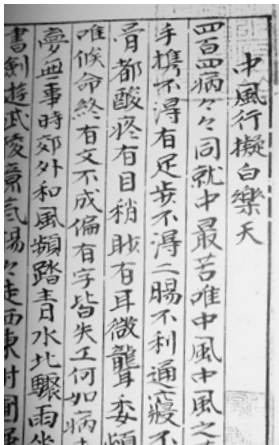 中風行擬白樂天
四百四病々々同就中最苦唯中風中風之
手攜不得有足步不得二腸不利通寢不
骨都酸疼有目稍眇有耳微聾委頓
唯候命終有文不成偏有字皆失工何如病
夢無事時郊外和風頻踏青水北驟雨
書劍遊武陵意氣陽々走西東